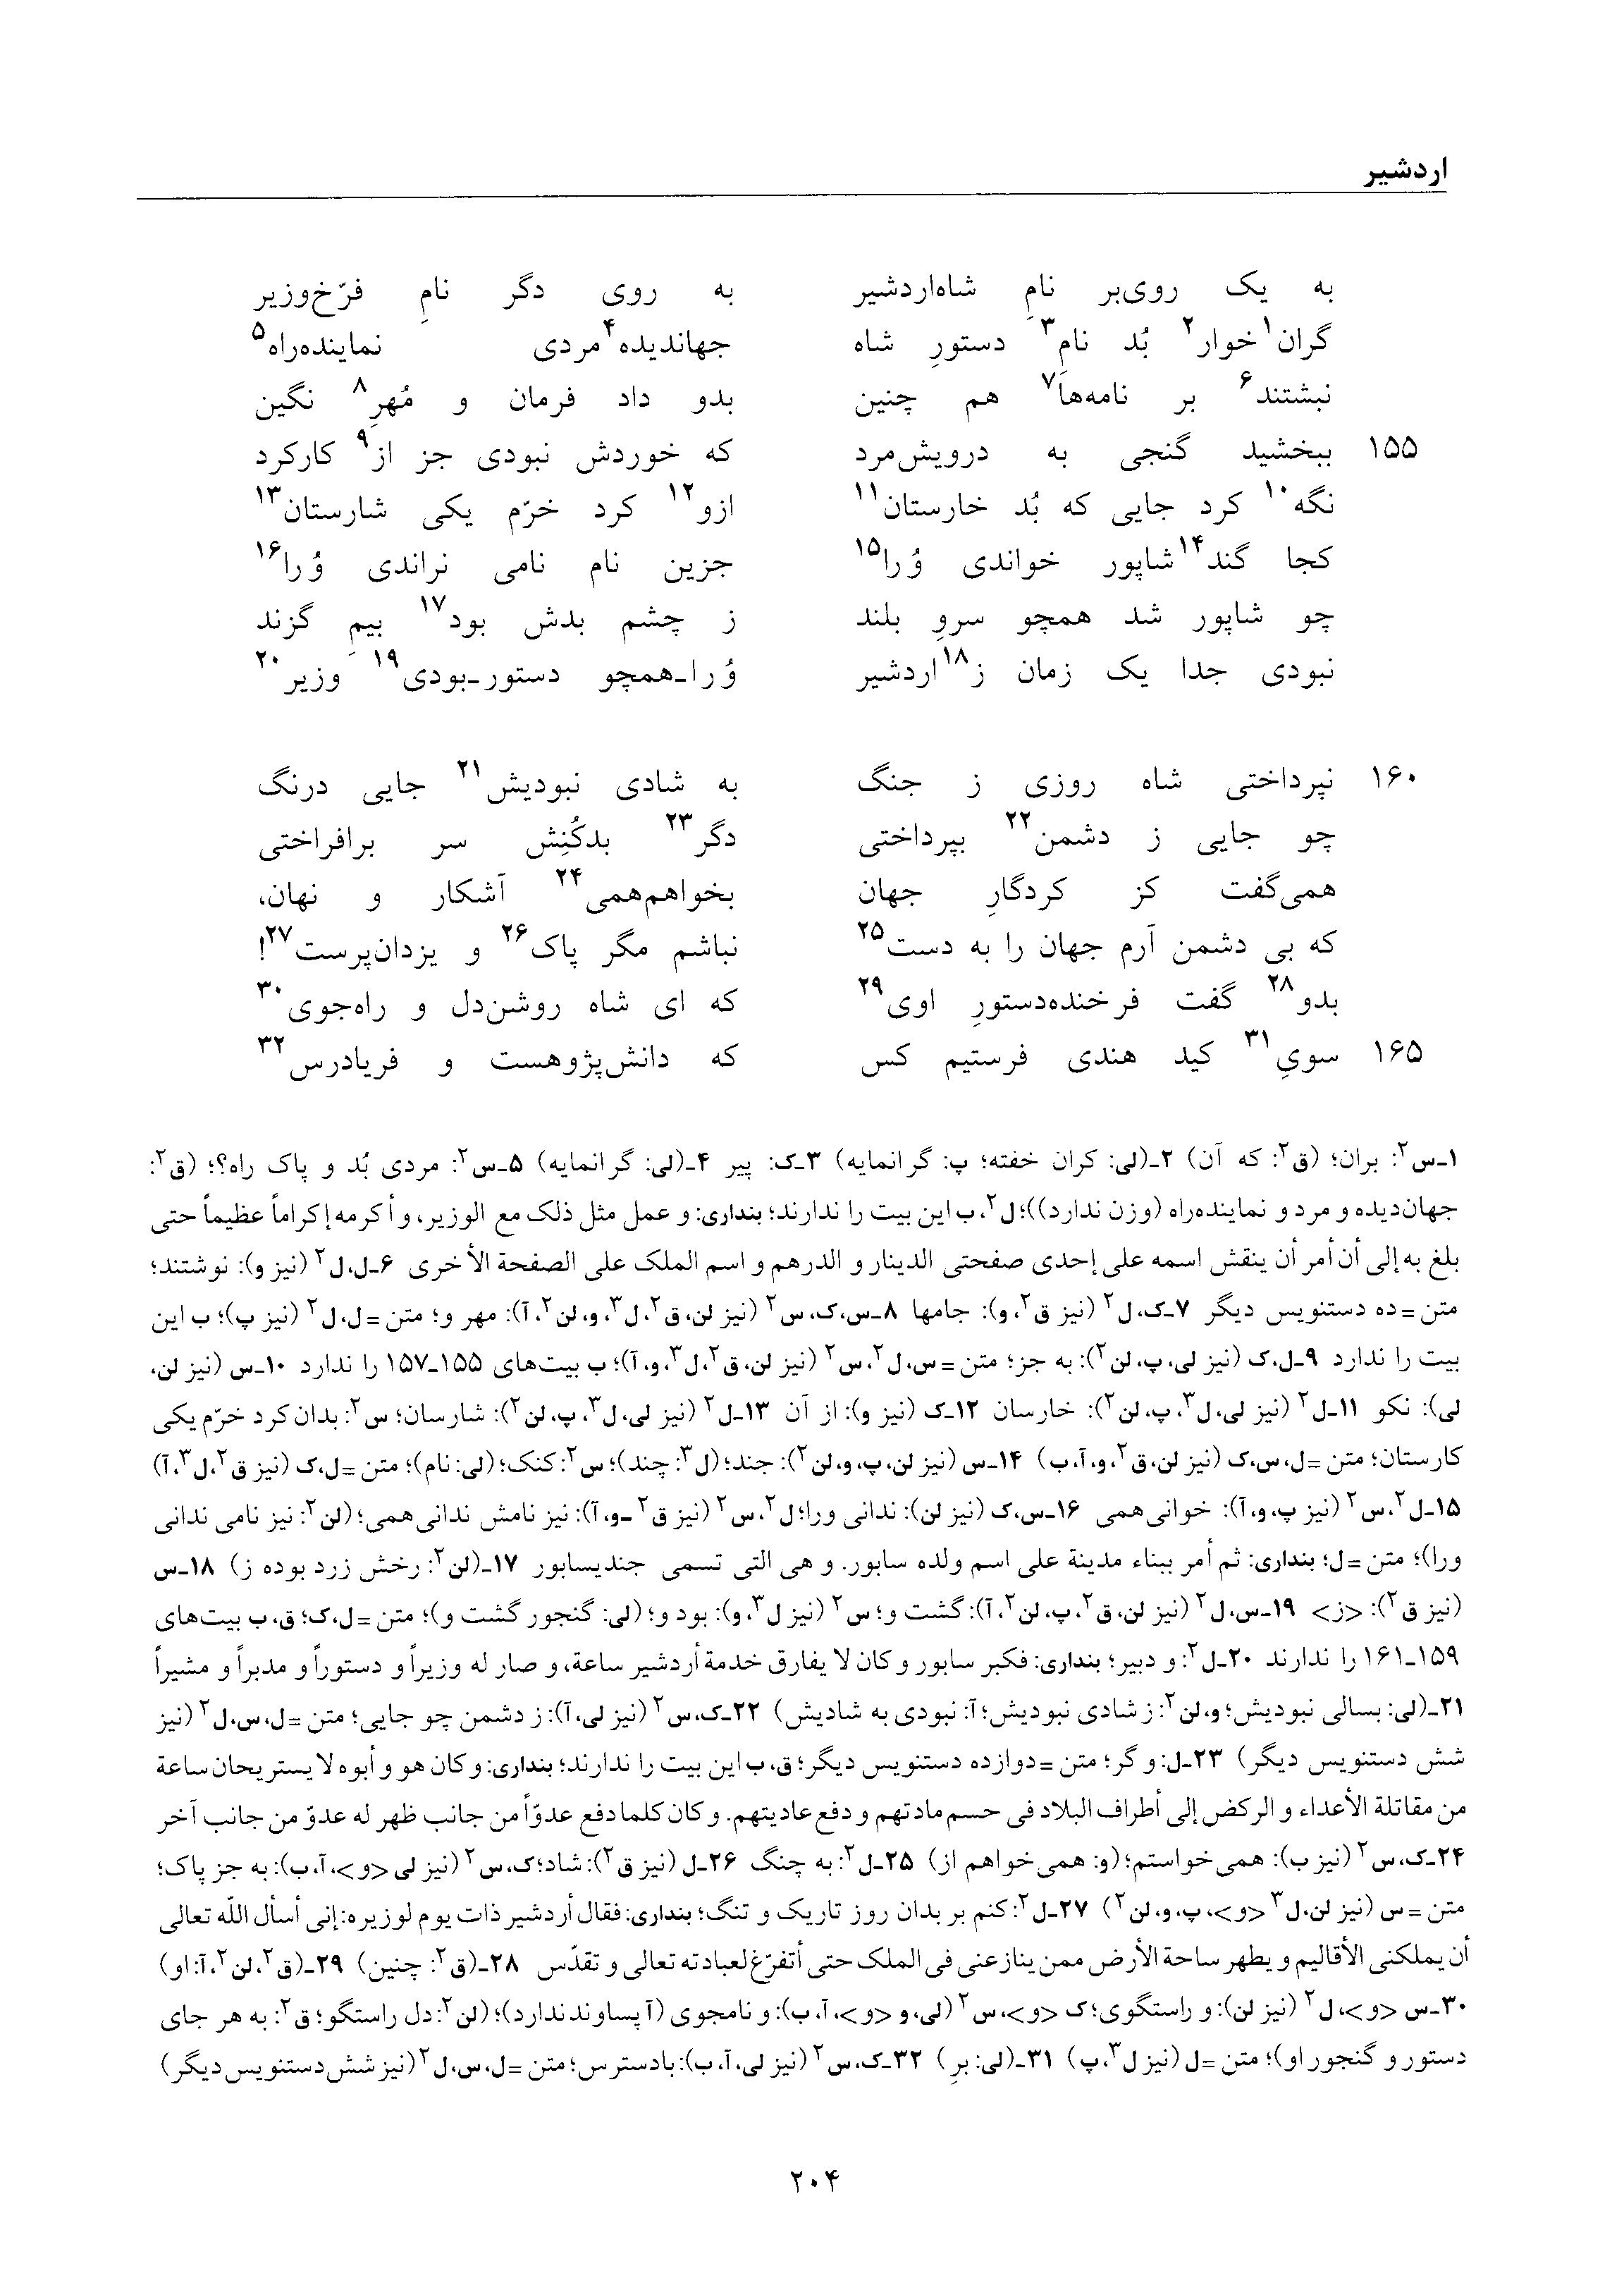 اردشیر
به یک روی‌بر نامِ شاه‌اردشیر به روی دگر نامِ فرّخ‌وزیر
گران۱ خوار۲ بُد نامِ۳ دستورِ شاه جهاندیده۴ مردی نماینده‌راه۵
نبشتند۶ بر نامه‌ها۷ هم چنین بدو داد فرمان و مُهرِ۸ نگین
۱۵۵ ببخشید گنجی به درویش‌مرد که خوردش نبودی جز از۹ کارکرد
نگه۱۰ کرد جایی که بُد خارستان۱۱ ازو۱۲ کرد خرّم یکی شارستان۱۳
کجا گند۱۴ شاپور خواندی وُرا۱۵ جزین نام نامی نراندی وُرا۱۶
چو شاپور شد همچو سروِ بلند ز چشم بدش بود۱۷ بیمِ گزند
نبودی جدا یک زمان ز۱۸ اردشیر وُرا-همچو دستور-بودی۱۹ وزیر۲۰
۱۶۰ نپرداختی شاه روزی ز جنگ به شادی نبودیش۲۱ جایی درنگ
چو جایی ز دشمن۲۲ بپرداختی دگر۲۳ بدکُنِش سر برافراختی
همی‌گفت کز کردگارِ جهان بخواهم‌همی۲۴ آشکار و نهان،
که بی دشمن آرم جهان را به دست۲۵ نباشم مگر پاک۲۶ و یزدان‌پرست۲۷!
بدو۲۸ گفت فرخنده‌دستورِ اوی۲۹ که ای شاه روشن‌دل و راه‌جوی۳۰
۱۶۵ سویِ۳۱ کید هندی فرستیم کس که دانش‌پژوهست و فریادرس۳۲
۱ـس۲: بران؛ (ق۲: که آن) ۲ـ(لی: کران خفته؛ پ: گرانمایه) ۳ـک: پیر ۴ـ(لی: گرانمایه) ۵ـس۲: مردی بُد و پاک راه؟؛ (ق۲:
جهان‌دیده و مرد و نماینده‌راه (وزن ندارد))؛ ل۲، ب این بیت را ندارند؛ بنداری: و عمل مثل ذلک مع الوزیر، و أکرمه إکراماً عظیماً حتی
بلغ به إلی أن أمر أن ینقش اسمه علی إحدی صفحتی الدینار و الدرهم و اسم الملک علی الصفحة الأخری ۶ـل، ل۲ (نیز و): نوشتند؛
متن = ده دستنویس دیگر ۷ـک، ل۲ (نیز ق۲، و): جامها ۸ـس، ک، س۲ (نیز لن، ق۲، ل۳، و، لن۲، آ): مهر و؛ متن = ل، ل۲ (نیز پ)؛ ب این
بیت را ندارد ۹ـل، ک (نیز لی، پ، لن۲): به جز؛ متن = س، ل۲، س۲ (نیز لن، ق۲، ل۳، و، آ)؛ ب بیت‌های ۱۵۵ـ۱۵۷ را ندارد ۱۰ـس (نیز لن،
لی): نکو ۱۱ـل۲ (نیز لی، ل۳، پ، لن۲): خارسان ۱۲ـک (نیز و): از آن ۱۳ـل۲ (نیز لی، ل۳، پ، لن۲): شارسان؛ س۲: بدان کرد خرّم یکی
کارستان؛ متن = ل، س، ک (نیز لن، ق۲، و، آ، ب) ۱۴ـس (نیز لن، پ، و، لن۲): جند؛ (ل۳: چند)؛ س۲: کنک؛ (لی: نام)؛ متن = ل، ک (نیز ق۲، ل۳، آ)
۱۵ـل۲، س۲ (نیز پ، و، آ): خوانی همی ۱۶ـس، ک (نیز لن): ندانی ورا؛ ل۲، س۲ (نیز ق۲ ـو، آ): نیز نامش ندانی همی؛ (لن۲: نیز نامی ندانی
ورا)؛ متن = ل؛ بنداری: ثم أمر ببناء مدینة علی اسم ولده سابور. و هی التی تسمی جندیسابور ۱۷ـ(لن۲: رخش زرد بوده ز) ۱۸ـس
(نیز ق۲): <ز> ۱۹ـس، ل۲ (نیز لن، ق۲، پ، لن۲، آ): گشت و؛ س۲ (نیز ل۳، و): بود و؛ (لی: گنجور گشت و)؛ متن = ل، ک؛ ق، ب بیت‌های
۱۵۹ـ۱۶۱ را ندارند ۲۰ـل۲: و دبیر؛ بنداری: فکبر سابور و کان لا یفارق خدمة أردشیر ساعة، و صار له وزیراً و دستوراً و مدبراً و مشیراً
۲۱ـ(لی: بسالی نبودیش؛ و، لن۲: ز شادی نبودیش؛ آ: نبودی به شادیش) ۲۲ـک، س۲ (نیز لی، آ): ز دشمن چو جایی؛ متن = ل، س، ل۲ (نیز
شش دستنویس دیگر) ۲۳ـل: و گر؛ متن = دوازده دستنویس دیگر؛ ق، ب این بیت را ندارند؛ بنداری: و کان هو و أبوه لا یستریحان ساعة
من مقاتلة الأعداء و الرکض إلی أطراف البلاد فی حسم مادتهم و دفع عادیتهم. و کان کلما دفع عدوّاً من جانب ظهر له عدوّ من جانب آخر
۲۴ـک، س۲ (نیز ب): همی خواستم؛ (و: همی خواهم از) ۲۵ـل۲: به چنگ ۲۶ـل (نیز ق۲): شاد؛ ک، س۲ (نیز لی <و>، آ، ب): به جز پاک؛
متن = س (نیز لن، ل۳ <و>، پ، و، لن۲) ۲۷ـل۲: کنم بر بدان روز تاریک و تنگ؛ بنداری: فقال أردشیر ذات یوم لوزیره: إنی أسأل اللّه تعالی
أن یملکنی الأقالیم و یطهر ساحة الأرض ممن ینازعنی فی الملک حتی أتفرّغ لعبادته تعالی و تقدّس ۲۸ـ(ق۲: چنین) ۲۹ـ(ق۲، لن۲، آ: او)
۳۰ـس <و>، ل۲ (نیز لن): و راستگوی؛ ک <و>، س۲ (لی، و <و>، آ، ب): و نامجوی (آ پساوند ندارد)؛ (لن۲: دل راستگو؛ ق۲: به هر جای
دستور و گنجور او)؛ متن = ل (نیز ل۳، پ) ۳۱ـ(لی: برِ) ۳۲ـک، س۲ (نیز لی، آ، ب): بادسترس؛ متن = ل، س، ل۲ (نیز شش دستنویس دیگر)
۲۰۴